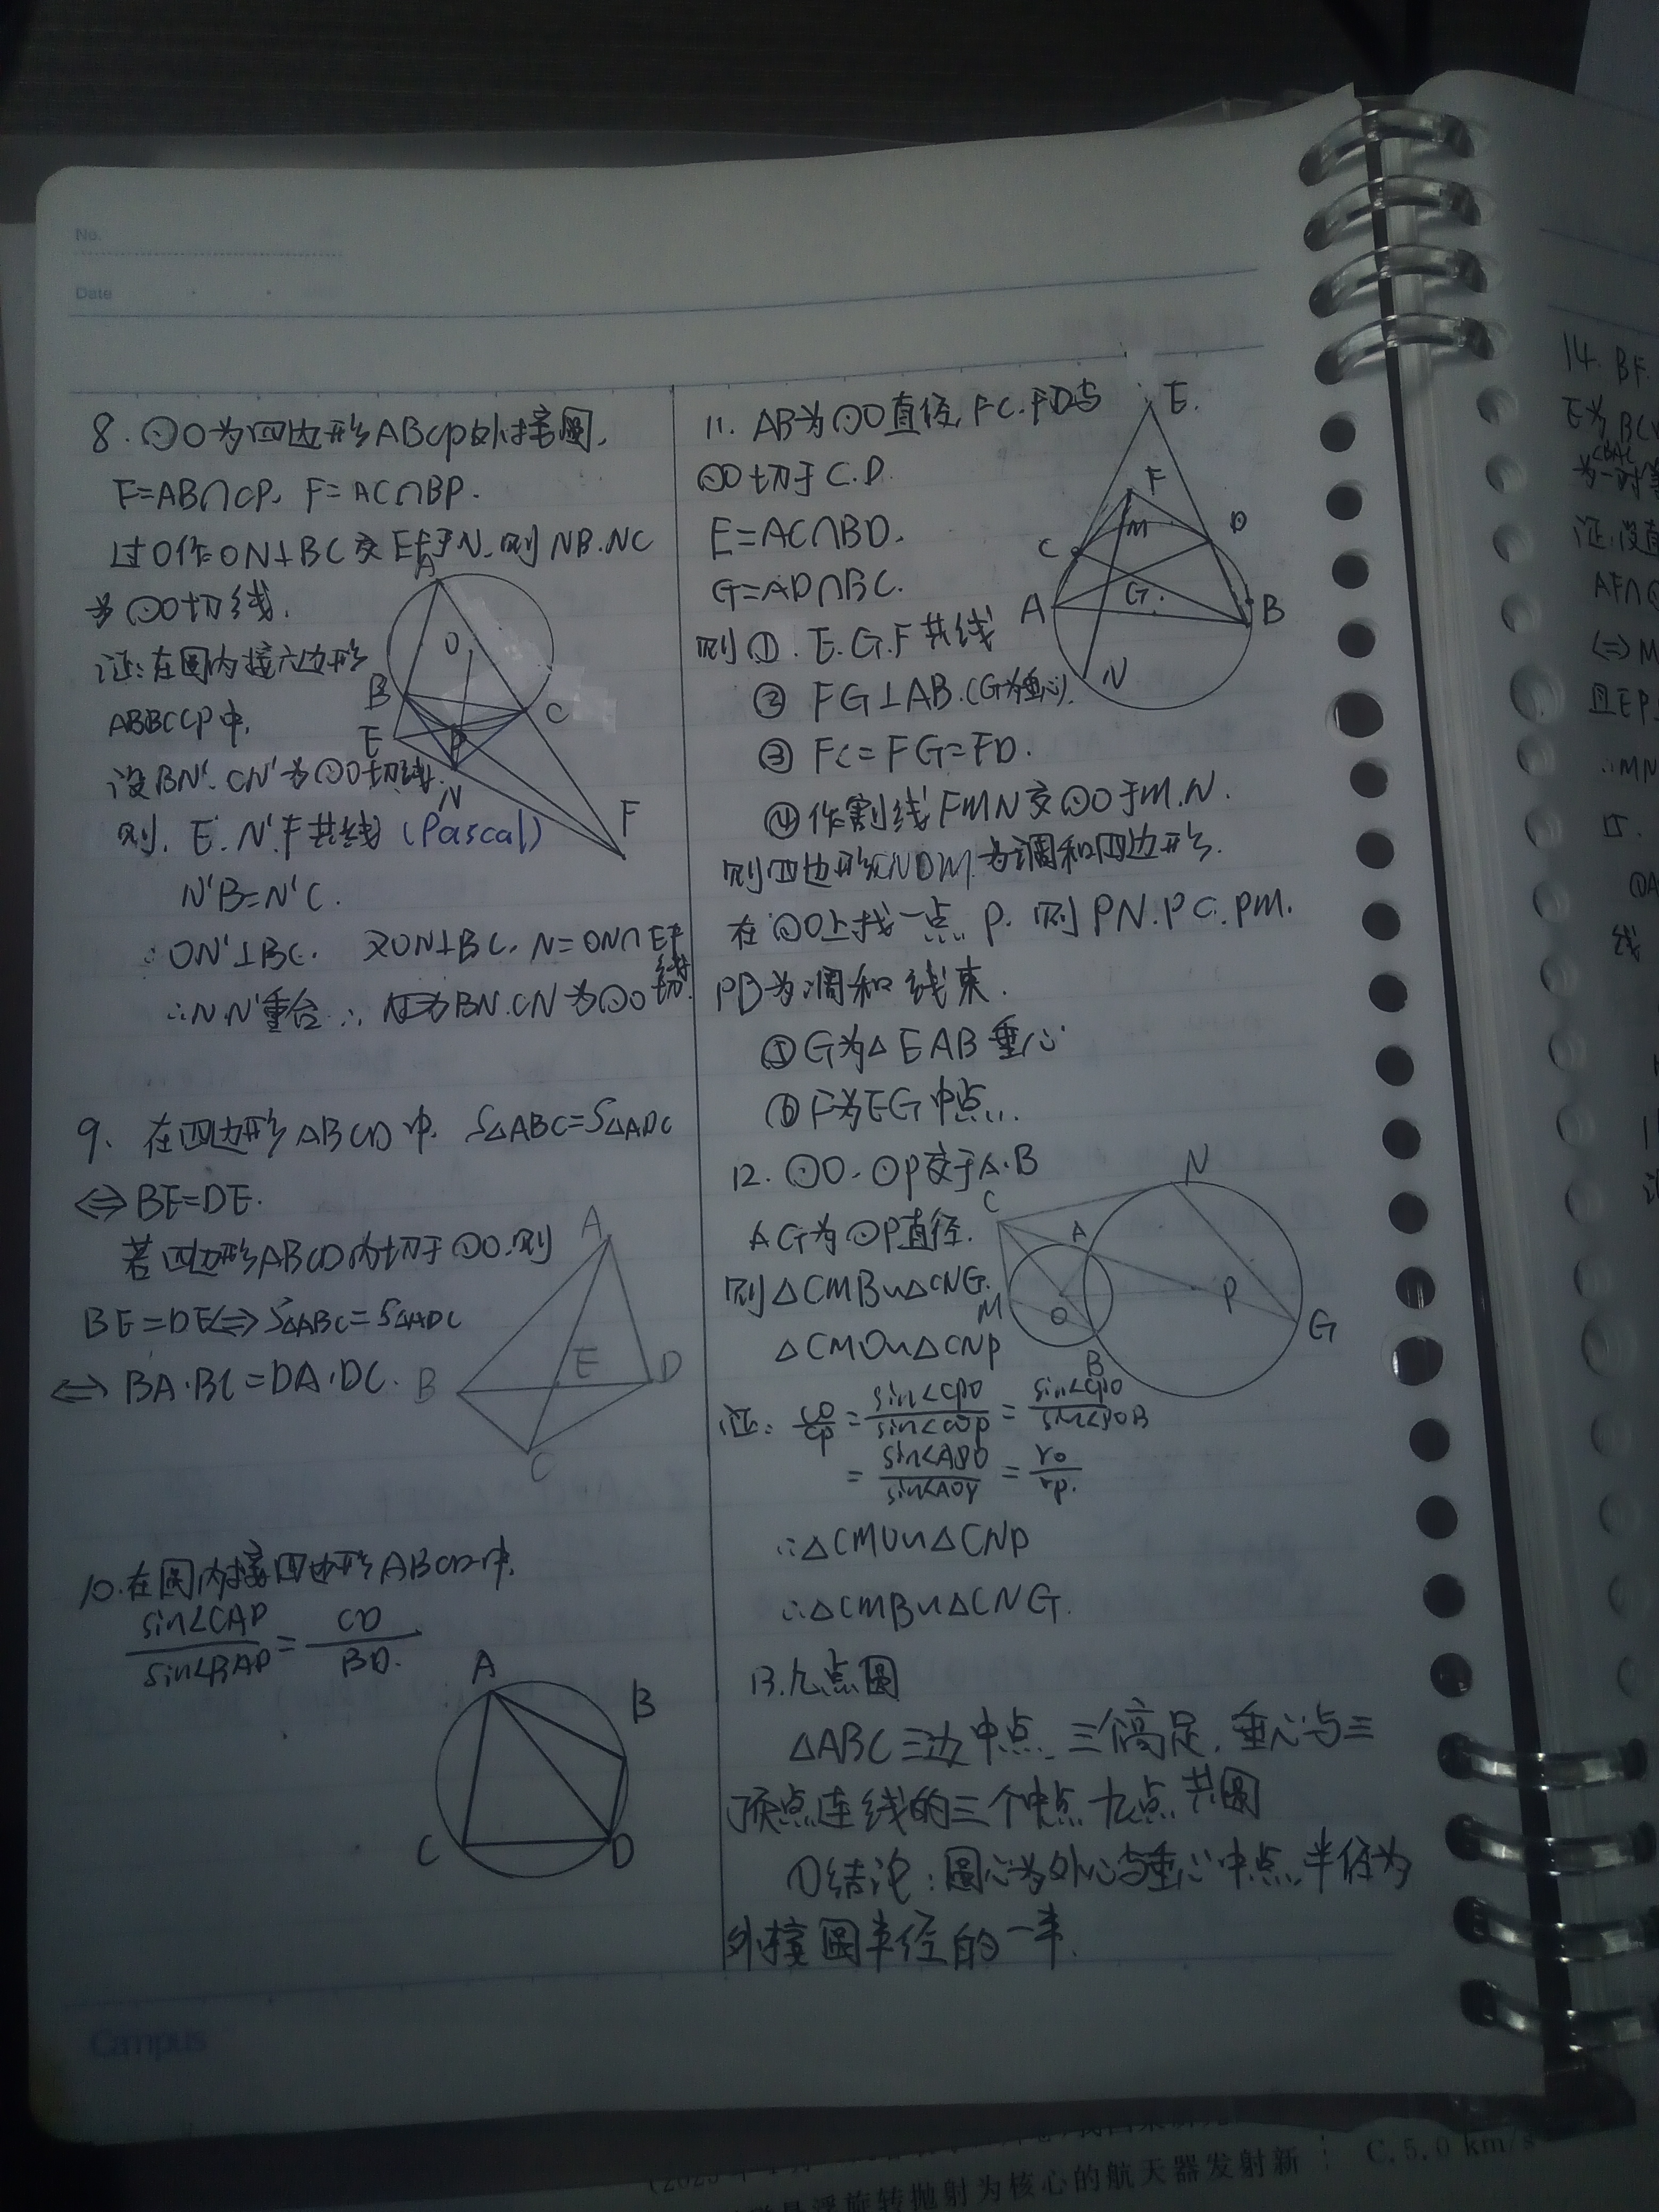 No.
Date
8. ⊙O为四边形ABCP外接圆,
E=AB∩CP, F=AC∩BP.
过O作ON⊥BC交EF于N,则NB.NC
为⊙O切线.
证:在圆内接六边形
ABBCCP中,
设BN'.CN'为⊙O切线.
则.E.N'.F共线(Pascal)
N'B=N'C.
∴ON'⊥BC. 又ON⊥BC, N=ON∩EF
∴N.N'重合∴ BN.CN为⊙O切线
A
O
B
C
E
P
N
F
9. 在四边形ABCD中, S△ABC=S△ADC
⇔BE=DE.
若四边形ABCD内切于⊙O,则
BE=DE⇔S△ABC=S△ADC
⇔BA·BC=DA·DC.
A
B
E
D
C
10.在圆内接四边形ABCD中,
sin∠CAD/sin∠BAD=CD/BD.
A
B
C
D
11. AB为⊙O直径,FC.FD与
⊙O切于C.D.
E=AC∩BD.
G=AD∩BC.
则①.E.G.F共线
② FG⊥AB.(G为垂心).
③ FC=FG=FD.
④作割线FMN交⊙O于M.N.
则四边形CNDM为调和四边形.
在⊙O上找一点P. 则PN.PC.PM.
PD为调和线束.
⑤G为△EAB垂心
⑥F为EG中点..
E.
F
M
C
D
A
G.
B
N
12. ⊙O.⊙P交于A.B
AG为⊙P直径.
则△CMB∽△CNG.
△CMO∽△CNP
证: CO/CP=sin∠CPO/sin∠COP=sin∠CPO/sin∠POB
=sin∠APO/sin∠AOP=ro/rp.
∴△CMO∽△CNP
∴△CMB∽△CNG.
C
N
A
M
O
P
B
G
13.九点圆
△ABC三边中点、三个高足,垂心与三
顶点连线的三个中点九点共圆
①结论:圆心为外心与垂心中点,半径为
外接圆半径的一半.
Campus
14. BF.
E为BC
∠BAC
为一对
证:设直
AF∩
⇔M
且EP
∴MN
15.
①A
线
浮旋转抛射为核心的航天器发射新
C.5.0 km/s